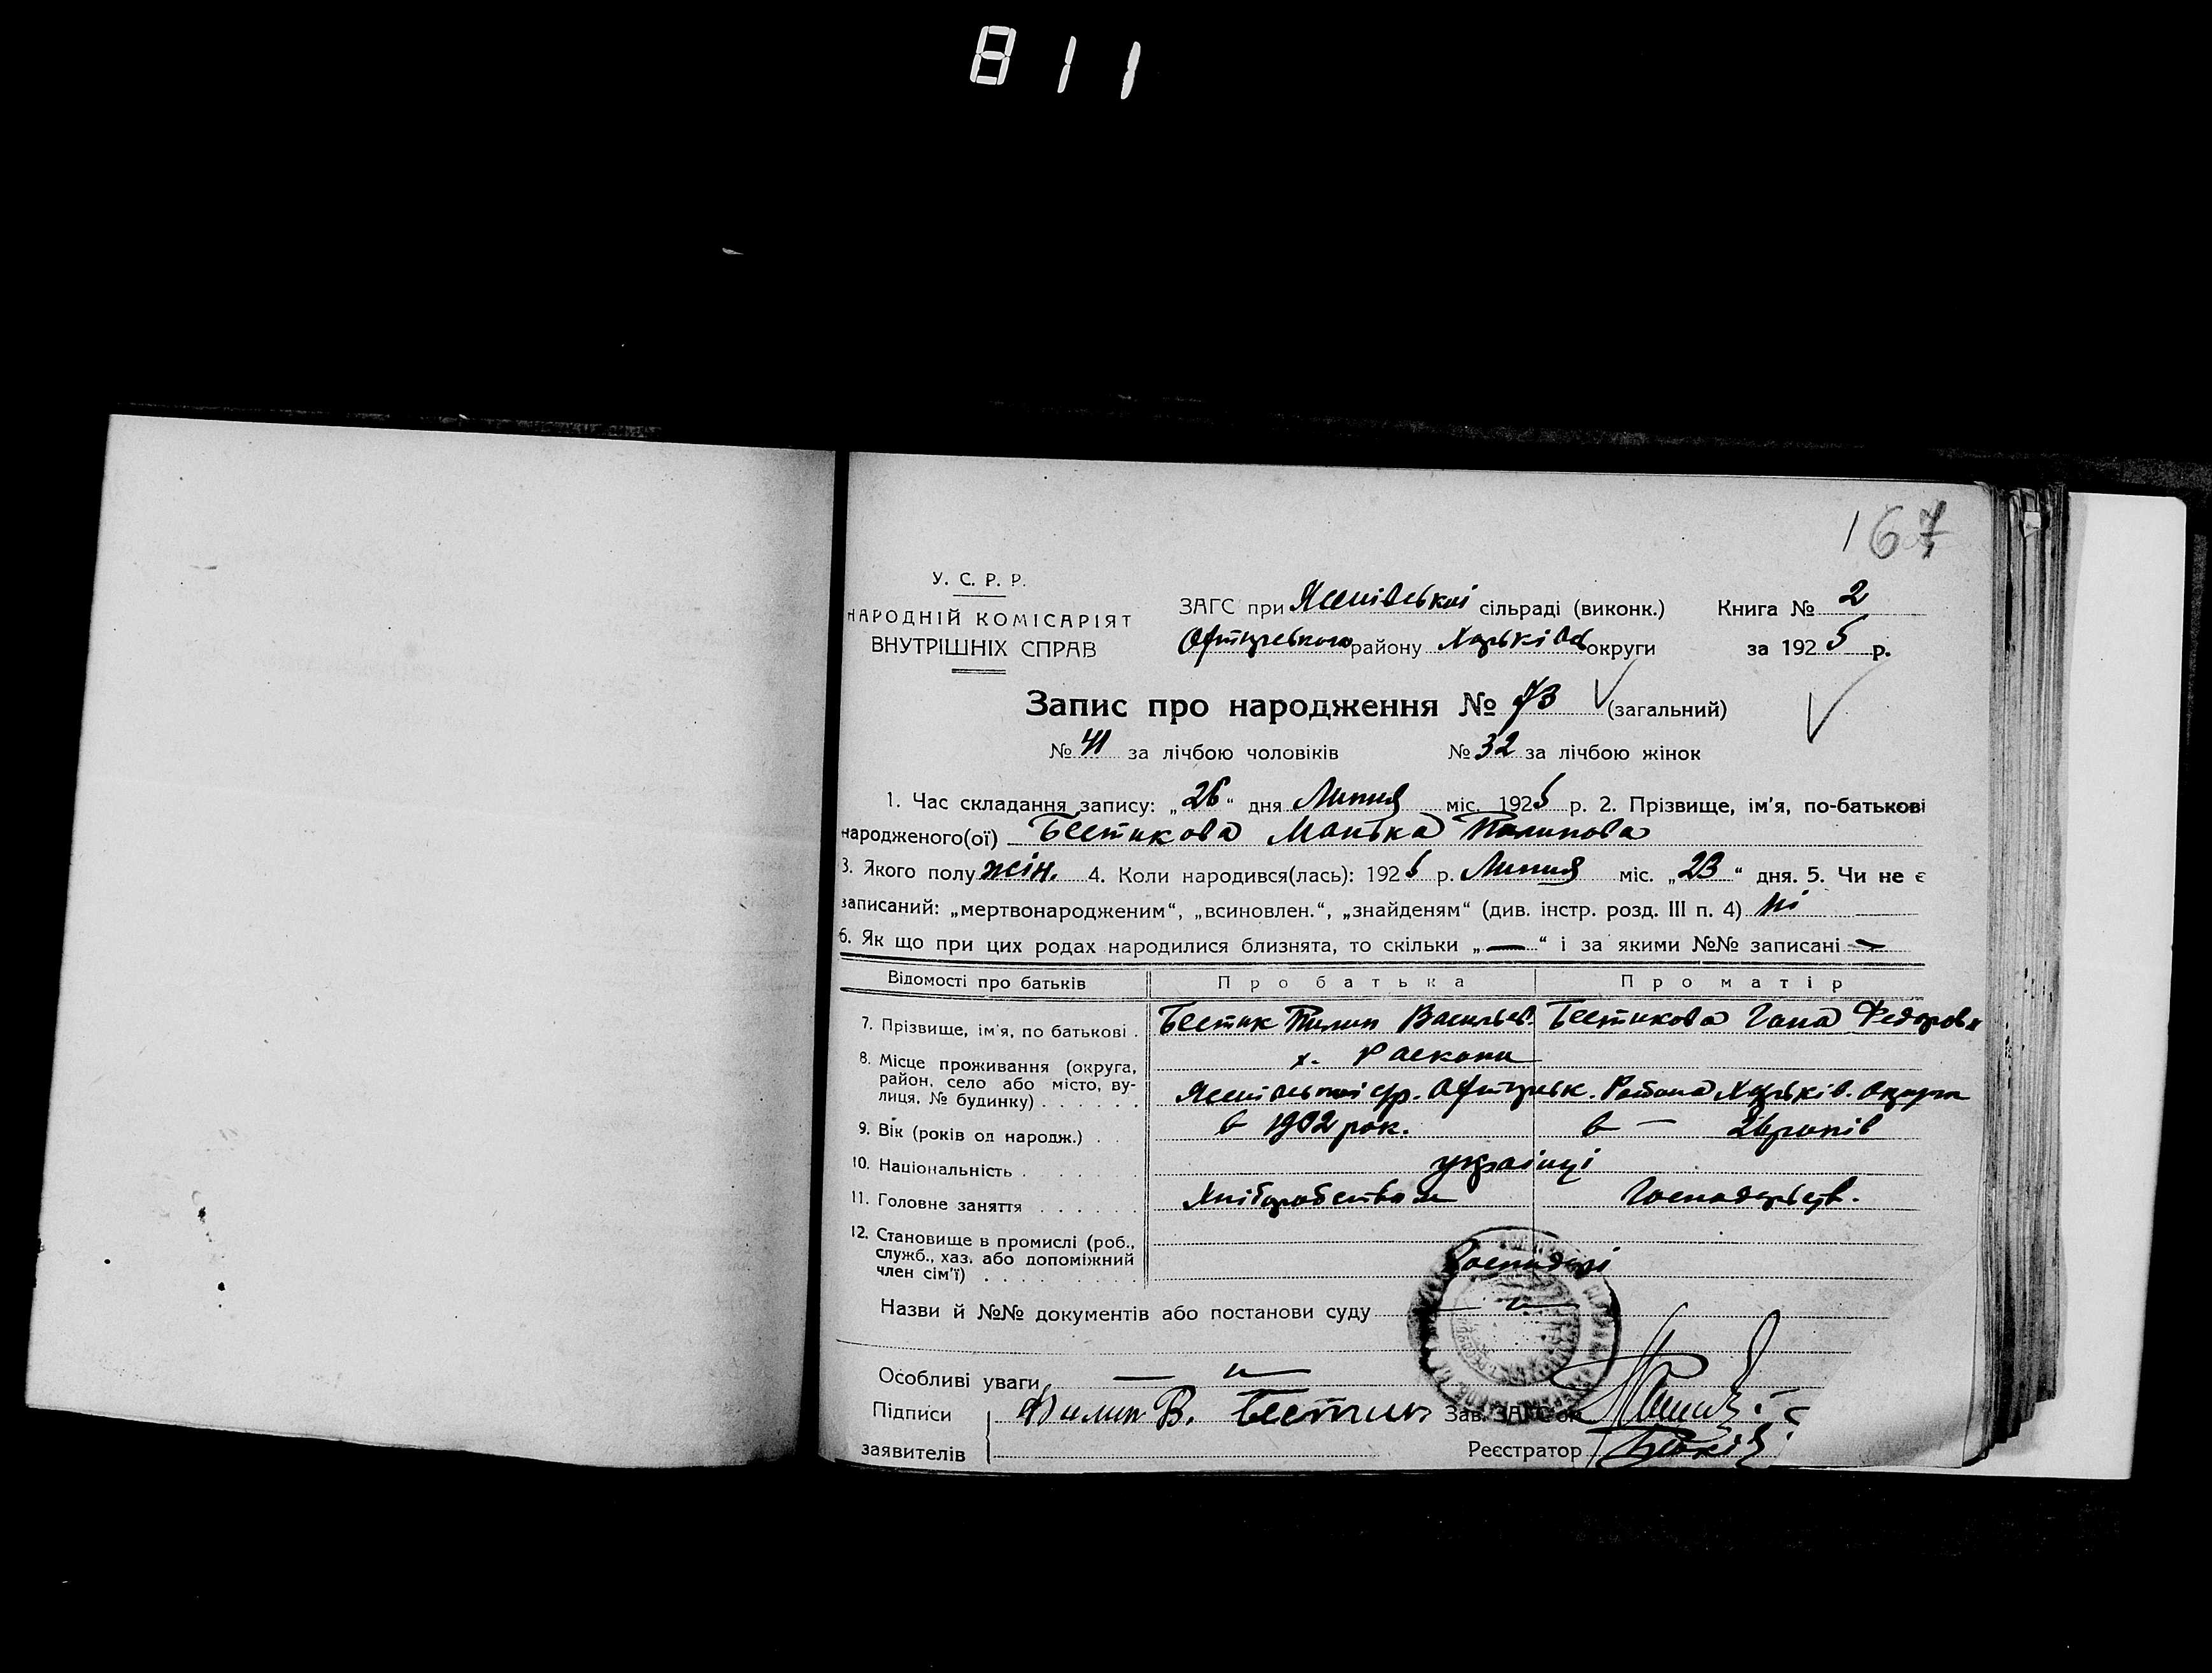 811
167
У. С. Р. Р.
НАРОДНІЙ КОМІСАРІЯТ
ВНУТРІШНІХ СПРАВ
ЗАГС при сільраді (виконк.) Книга № 2
району Харьків округи за 1925 р.
Запис про народження № 73 (загальний)
№ 41 за лічбою чоловіків № 32 за лічбою жінок
1. Час складання запису: „26“ дня Липня міс. 1925 р. 2. Прізвище, ім'я, по-батькові
народженого(ої) Бестикова Манька Пилипова
3. Якого полу жін. 4. Коли народився(лась): 1925 р. Липня міс. „23“ дня. 5. Чи не є
записаний: „мертвонародженим“, „всиновлен.“, „знайденям“ (див. інстр. розд. III п. 4) ні
6. Як що при цих родах народилися близнята, то скільки „—“ і за якими №№ записані —
Відомості про батьків Про батька Про матір
7. Прізвище, ім'я, по батькові . Бестик Пилип Васильев. Бестикова Гана Федоров
8. Місце проживання (округа, район, село або місто, вулиця, № будинку) х. Раскопи
Харьків. округи
9. Вік (років од народж.) . . в 1902 рок. в —
10. Національність . українці
11. Головне заняття . . . . . . Хліборобством Господарств.
12. Становище в промислі (роб., служб., хаз. або допоміжний член сім'ї) . Господарі
Назви й №№ документів або постанови суду
Особливі уваги
Підписи Филип В. Бестик Зав. ЗАГС'ом
заявителів Реєстратор